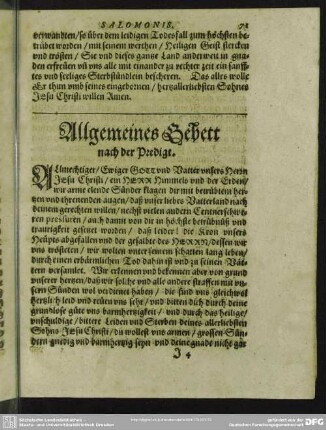 SALOMONIS. 71
verwandten / so über dem leidigen Todesfall zum höchsten be-
trübet worden / mit seinem werthen / Heiligen Geist stercken
vnd trösten / Sie vnd dieses gantze Land anderweit in gna-
den erfreuen vñ vns alle mit einander zu rechter zeit ein sanff-
tes vnd seeliges Sterbstündlein bescheren. Das alles wolle
Er thun vmb seines eingebornen / hertzallerliebsten Sohnes
Jesu Christi willen Amen.
Allgemeines Gebett
nach der Predigt.
ALlmechtiger / Ewiger GOTT vnd Vatter vnsers Herrn
Jesu Christi / ein HERR Himmels vnd der Erden /
wir arme elende Sünder klagen dir mit betrübten her-
tzen vnd threnenden augen / daß vnser liebes Vatterland nach
deinem gerechten willen / nechst vielen andern Centnerschwe-
ren pressuren / auch damit von dir in höchste betrübnüß vnd
traurigkeit gesetzet worden / daß leider! die Kron vnsers
Heupts abgefallen vnd der gesalbte des HERRN / dessen wir
vns trösteten / wir wolten vnter seinem schatten lang leben /
durch einen erbärmlichen Tod dahin ist vnd zu seinen Vät-
tern versamlet. Wir erkennen vnd bekennen aber von grund
vnserer hertzen / daß wir solche vnd alle andere straffen mit vn-
sern Sünden wol verdienet haben / die sind vns gleichwol
hertzlich leid vnd reuen vns sehr / vnd bitten dich durch deine
grundlose güte vns barmhertzigkeit / vnd durch das heilige /
vnschuldige / bittere Leiden vnd Sterben deines allerliebsten
Sohns Jesu Christi / du wollest vns armen / grossen Sün-
dern gnedig vnd barmhertzig seyn vnd deine gnade nicht gar
J 4